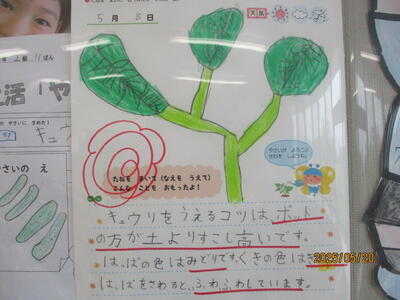 5月8日
天気
たねを まいて(なえを うえて)
どんな ことを おもったよ!
やさいが よろこぶ
せわを しようね。
キュウリをうえるコツは、ポット
の方が土よりすこし高いです。
は、ぱの色はみどりです。くきの色は
は、ぱをさわると、ふわふわしています。
2025/05/20
2組 11ばん
活「や
に きめた!
キュウ
やさいの え